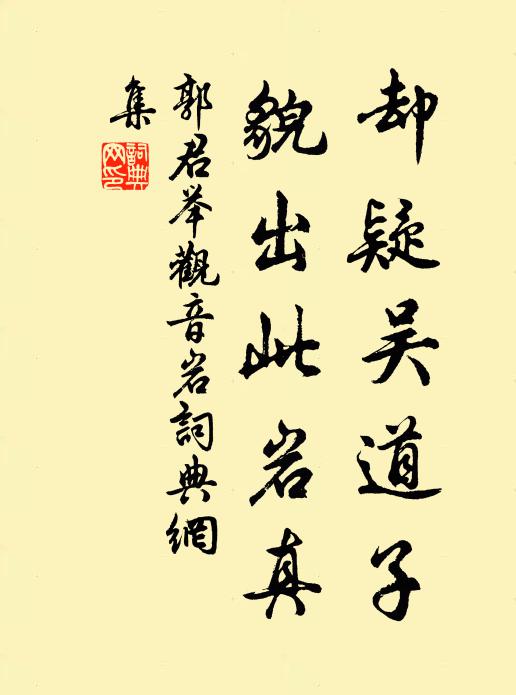 却疑吴道子
貌出此岩真
郭君举觀音岩詞典網
集
詞典网印